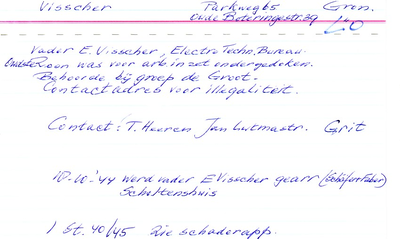 Visscher Parkweg 65 Gron.
Oude Boteringestr. 39 L.O
Vader E. Visscher, Electro Techn. Bureau.
Oudste zoon was voor arb. inzet ondergedoken.
Behoorde bij groep de Groot.
Contactadres voor illegaliteit.
Contact: T. Heeren Jan Lutmastr. Grit
10-10-'44 werd vader E Visscher gearr (Schäfer+Faber)
Scholtenshuis
1 St. 40/45 Zie schaderapp.